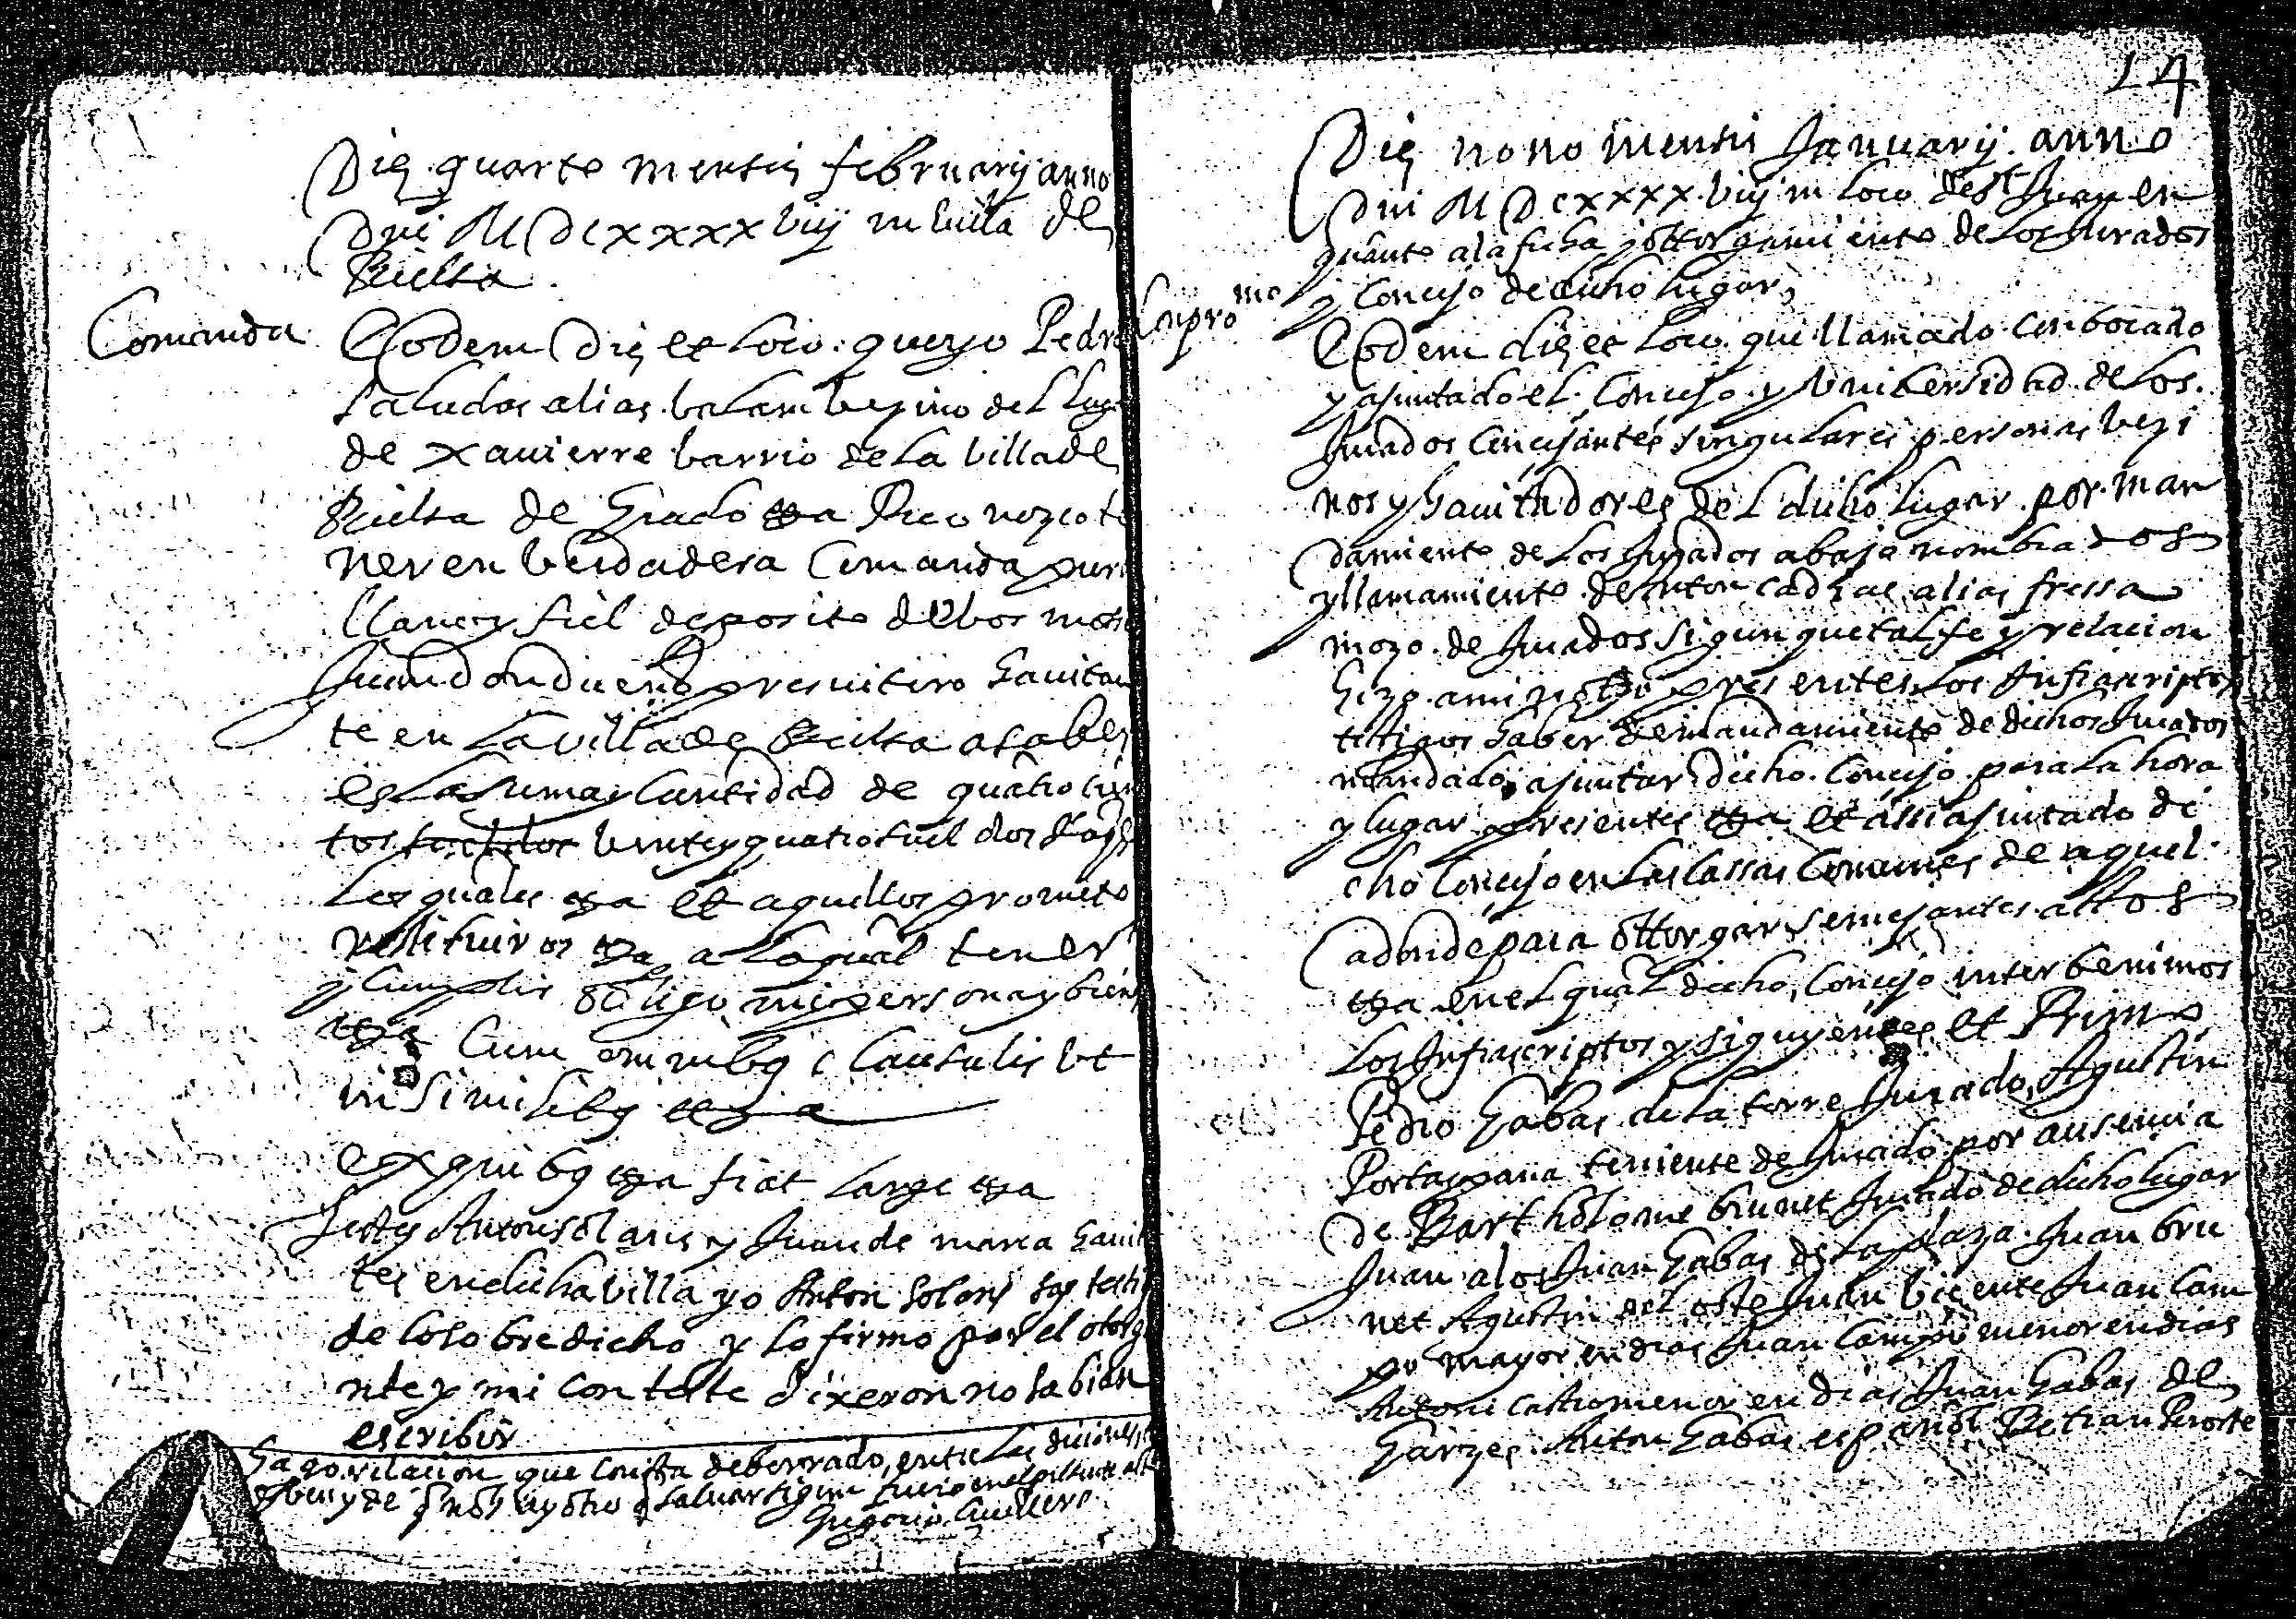 Die quarto mensis februarij anno
Dni M DCxxxxviij in villa de
Bielsa.
Comanda
Eodem Die et Loco. que yo Pedro
Saludas alias balam bezino del Lug
de xauierre barrio de La billa de
Bielsa de Grado etta Reconozco te
ner en berdadera Comanda pura
llano y fiel deposito de bos mossen
Juan don duendo presuitero hauitan
te en La villa de Bielsa a saber
es La suma y Cantidad de quatrocien
tos veinte y quatro sueldos Jaqs
Los quales etta et aquellos prometo
restituir os etta a Lo qual tener
y Cumplir obligo mi persona y bienes
etta Cum omnibus Clausulis ut
in similibus etta
ex quibus etta fiat large etta
Testes Anton solans y Juan de maria hauit
tes en dicha villa yo Anton solans soy testigo
de lo sobredicho y lo firmo por el otorga
nte y mi conteste dixeron no sabian
escribir
hago relacion que consta de borrado, entre Las diciones,
Gregorio Guillero
14
Die nono mensis Januarij. anno
Dni M DCxxxx.viij in Loco de St Juan en
quanto a la fecha y ottorgamiento de Los Jurados
y Concejo de dicho lugar,
Conpromo
Eodem die et Loco. que llamado Conbocado
y ajuntado el. Concejo. y Vnibersidad. de Los.
Jurados Concejantes singulares personas bezi
nos y hauitadores del dicho Lugar. por. man
damiento de Los Jurados abajo nombrados
y llamamiento de Anton cadrae alias fressa
mozo. de Jurados sigun que tal fe y relacion
hizo. a mi notto presentes Los Infrascriptos
testigos haber de mandamiento de dichos Jurados
mandado, ajuntar dicho. Concejo. para La hora
y lugar presentes etta et assi ajuntado di
cho Concejo en Las Cassas Comunes de aquel.
adonde para ottorgar semejantes actos
etta en el qual dicho, Concejo interbenimos
Los Infrascriptos y siguyentes et Primo
Pedro Gabas de La torre Jurado, Agustin
Portaspana teniente de Jurado por ausencia
de Bartholome brunet Jurado de dicho lugar
Juan alos Juan Gabas de La plaza. Juan bru
net Agustin del oste Juan bicente Juan Cam
po mayor en dias Juan Campo menor en dias
Antoni castro menor en dias Juan Gabas de
Garzes. Anton Gabas español Betran Puyorte